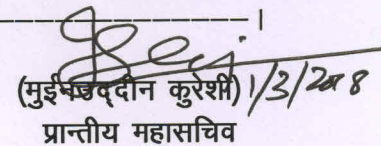 (मुईनउद्दीन कुरेशी) 1/3/2018
प्रान्तीय महासचिव